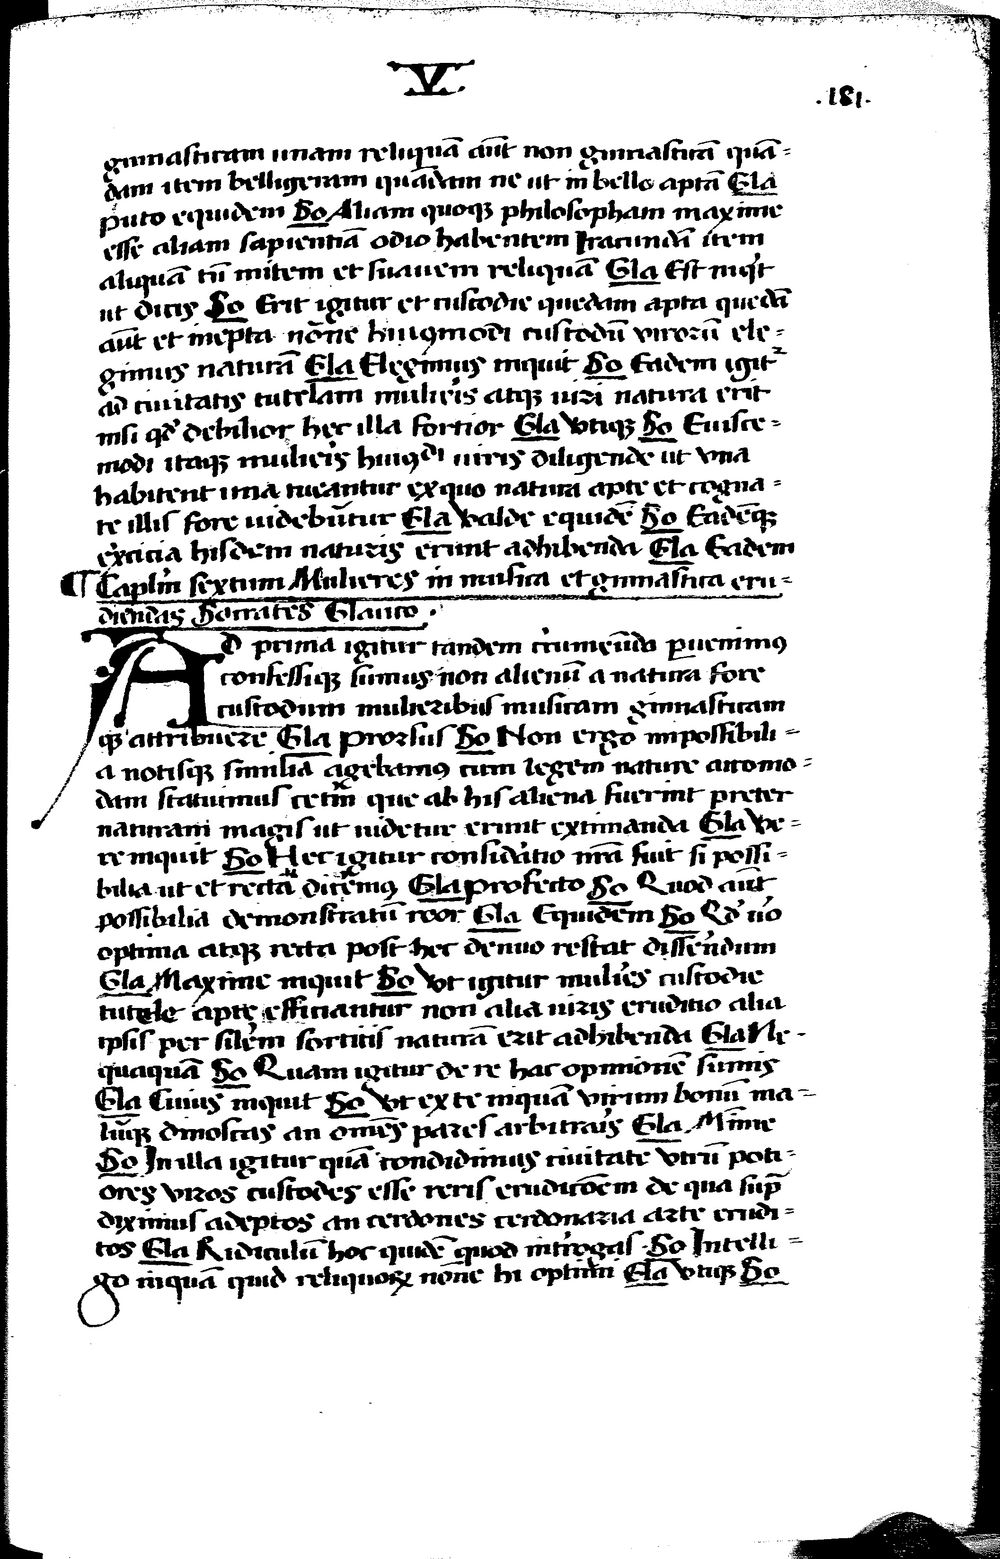 V
.181.
gimnasticam unam reliquā aūt non gimnasticā quā=
dam item belligeram quādam ne ut in bello aptā Gla
puto equidem So Aliam quoqꝫ philosopham maxime
esse aliam sapientiā odio habentem Iracundā item
aliquā tū mitem et suauem reliquā Gla Est inqͥt
ut dicis So Erit igitur et custodie quedam apta quedā
aūt et inepta nōne huiꝯmodi custodū virorū ele=
gimus naturā Gla Elegimus inquit So Eadem igitᷣ
ad ciuitatis tutelam mulieris atqꝫ uiri natura erit
nisi qd̓ debilior hec illa fortior Gla Vtiqꝫ So Euisce=
modi itaqꝫ mulieris huiꝯdi uiris diligende ut vna
habitent una tueantur ex quo natura apte et cogna=
te illis fore uidebūtur Gla Valde equidē So Eadēqꝫ
ex̓citia hisdem naturis erunt adhibenda Gla Eadem
¶ Caplm̄ sextum Mulieres in musica et gimnastica eru=
diendas Socrates Glauco .
AD prima igitur tandem r̓cumeūdo ꝑuenimꝯ
confessiqꝫ sumus non alienū a natura fore
custodum mulieribus musicam gimnasticam
qꝫ attribuere Gla prorsus So Non ergo impossibili=
a uotisqꝫ similia agebamꝯ cum legem nature accomo=
dam statuimus cetm̄ que ab his aliena fuerint preter
naturam magis ut uidetur erunt extimanda Gla Ve=
re inquit So Hec igitur considātio nr̄a fuit si possi=
bilia ut et recta dicēmꝯ Gla profecto So Quod aūt
possibilia demonstratū reor Gla Equidem So Qd̓ uͦo
optima atqꝫ recta post hec denuo restat dissēndum
Gla Maxime inquit So Vt igitur mulies custodie
tutele apte efficiantur non alia uiris eruditio alia
ipsis per silēm sortitis naturā erit adhibenda Gla Ne-
quaquā So Quam igitur de re hac opinionē sumis
Gla Cuius inquit So Vt ex te inquā virum bonū ma=
lūqꝫ dinoscas an omēs pares arbitraris Gla Mīme
So In illa igitur quā condidimus ciuitate vtrū poti=
ores viros custodes esse reris erudicōem de qua sup̄
diximus adeptos an cerdones cerdonaria arte erudi=
tos Gla Ridiculū hoc quidē quod intr̓ogas So Intelli=
go inquā quid reliquoꝝ nōne hi optimi Gla Vtiqꝫ So